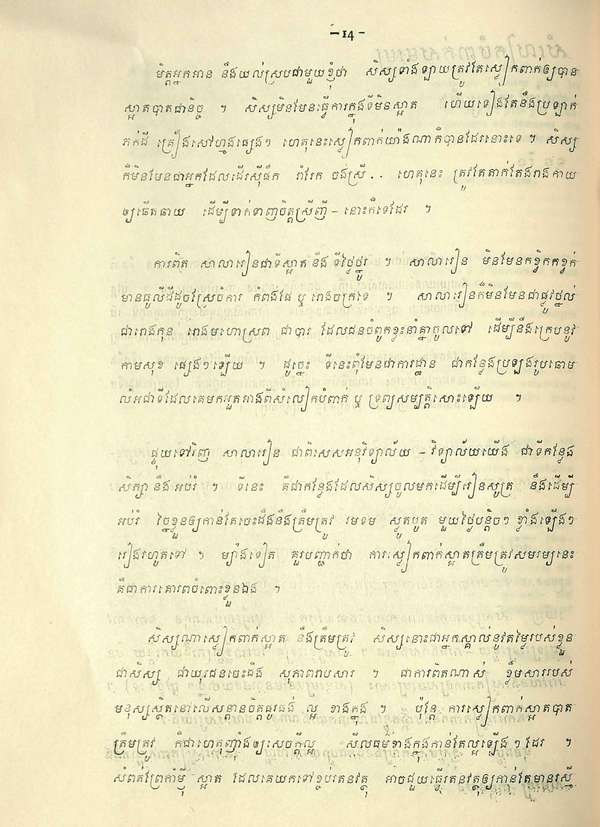 - 14 -
មិត្តអ្នកអាន នឹងយល់ស្របជាមួយខ្ញុំថា សិស្សទាំងឡាយត្រូវតែស្លៀកពាក់ឲ្យបាន
ស្អាតបាតជានិច្ច ។ សិស្សមិនមែនធ្វើការក្នុងទីមិនស្អាត ហើយទៀងតែនឹងប្រឡាក់
ភក់ដី គ្រឿងសៅហ្មងផ្សេងៗ ហេតុនេះស្លៀកពាក់យ៉ាងណាក៏បានដែរនោះទេ ។ សិស្ស
ក៏មិនមែនជាអ្នកដែលដើរស៊ីផឹក រាំរែក ចង់ស្រី . . ហេតុនេះ ត្រូវតែតាក់តែងរាងកាយ
ឲ្យឆើតឆាយ ដើម្បីទាក់ទាញចិត្តស្រីញី - នោះក៏ទេដែរ ។
ការពិត សាលារៀនជាទីស្អាត នឹង ទីថ្លៃថ្នូរ ។ សាលារៀន មិនមែនកខ្វិកកខ្វក់
មានធូលីដីដូចស្រែចំការ កំពង់ផែ ឬ រោងចក្រទេ ។ សាលារៀនក៏មិនមែនជាផ្លូវថ្នល់
ជារោងកុន រោងមហោស្រព ជាបារ ដែលជនចំពូកខ្លះនាំគ្នាចូលទៅ ដើម្បីនឹងក្រេបនូវ
កាមសុខ ផ្សេងៗឡើយ ។ ដូច្នេះ ទីនេះពុំមែនជាការដ្ឋាន ជាកន្លែងប្រឡងរូបឆោម
លំអជាទីដែលគេមកអួតអាងពីសំលៀកបំពាក់ ឬ ទ្រព្យសម្បត្តិសោះឡើយ ។
ផ្ទុយទៅវិញ សាលារៀន ជាពិសេសអនុវិទ្យាល័យ - វិទ្យាល័យយើង ជាទីកន្លែង
សិក្សា នឹង អប់រំ ។ ទីនេះ គឺជាកន្លែងដែលសិស្សចូលមកដើម្បីរៀនសូត្រ នឹងដើម្បី
អប់រំ ខ្លួនឲ្យកាន់តែចេះដឹងនឹងត្រឹមត្រូវ រមទម ស្លូតបូត មួយថ្ងៃបន្តិចៗ ខ្លាំងឡើងៗ
រឿងរហូតទៅ ។ ម្យ៉ាងទៀត គួរបញ្ជាក់ថា ការស្លៀកពាក់ស្អាតត្រឹមត្រូវសមរម្យនេះ
គឺជាការគោរពចំពោះខ្លួនឯង ។
សិស្សណាស្លៀកពាក់ស្អាត នឹងត្រឹមត្រូវ សិស្សនោះជាអ្នកស្គាល់នូវតម្លៃរបស់ខ្លួន
ជាសិស្ស ជាយុវជនចេះដឹង សុភាពរាបសារ ។ ជាការពិតណាស់ ខ្លឹមសាររបស់
មនុស្សស្ថិតនៅលើសន្តានចិត្តធូរធង់ ល្អ ខាងក្នុង ។ ប៉ុន្តែ ការស្លៀកពាក់ស្អាតបាត
ត្រឹមត្រូវ ក៏ជាហេតុញ៉ាំងឲ្យសេចក្តីល្អ ស៊ីលធម៌ខាងក្នុងកាន់តែល្អឡើង ៗ ដែរ ។
សំពត់ព្រៃកាំម៉្ញី ស្អាត ដែលគេយកទៅខ្ចប់រតនវត្ថុ អាចជួយធ្វើរតនវត្ថុឲ្យកាន់តែមានរស្មី